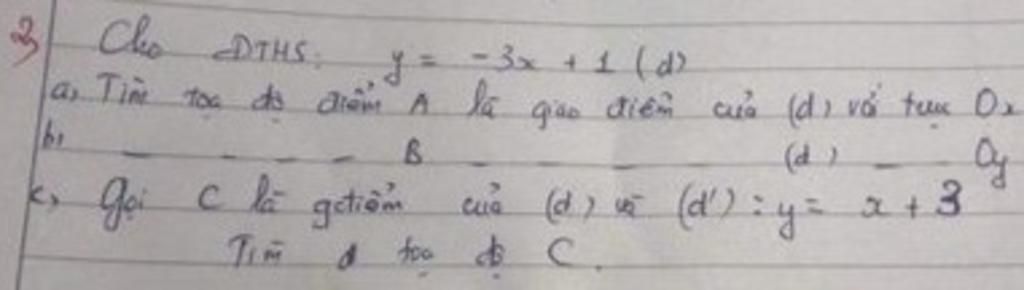 3, Cho ĐTHS: y = -3x + 1 (d)
a, Tìm tọa độ điểm A là giao điểm của (d) với trục Ox
b, _ _ _ _ B _ _ _ _ (d) _ Oy
c, Gọi C là gđiểm của (d) và (d'): y = x + 3
Tìm tọa độ C.